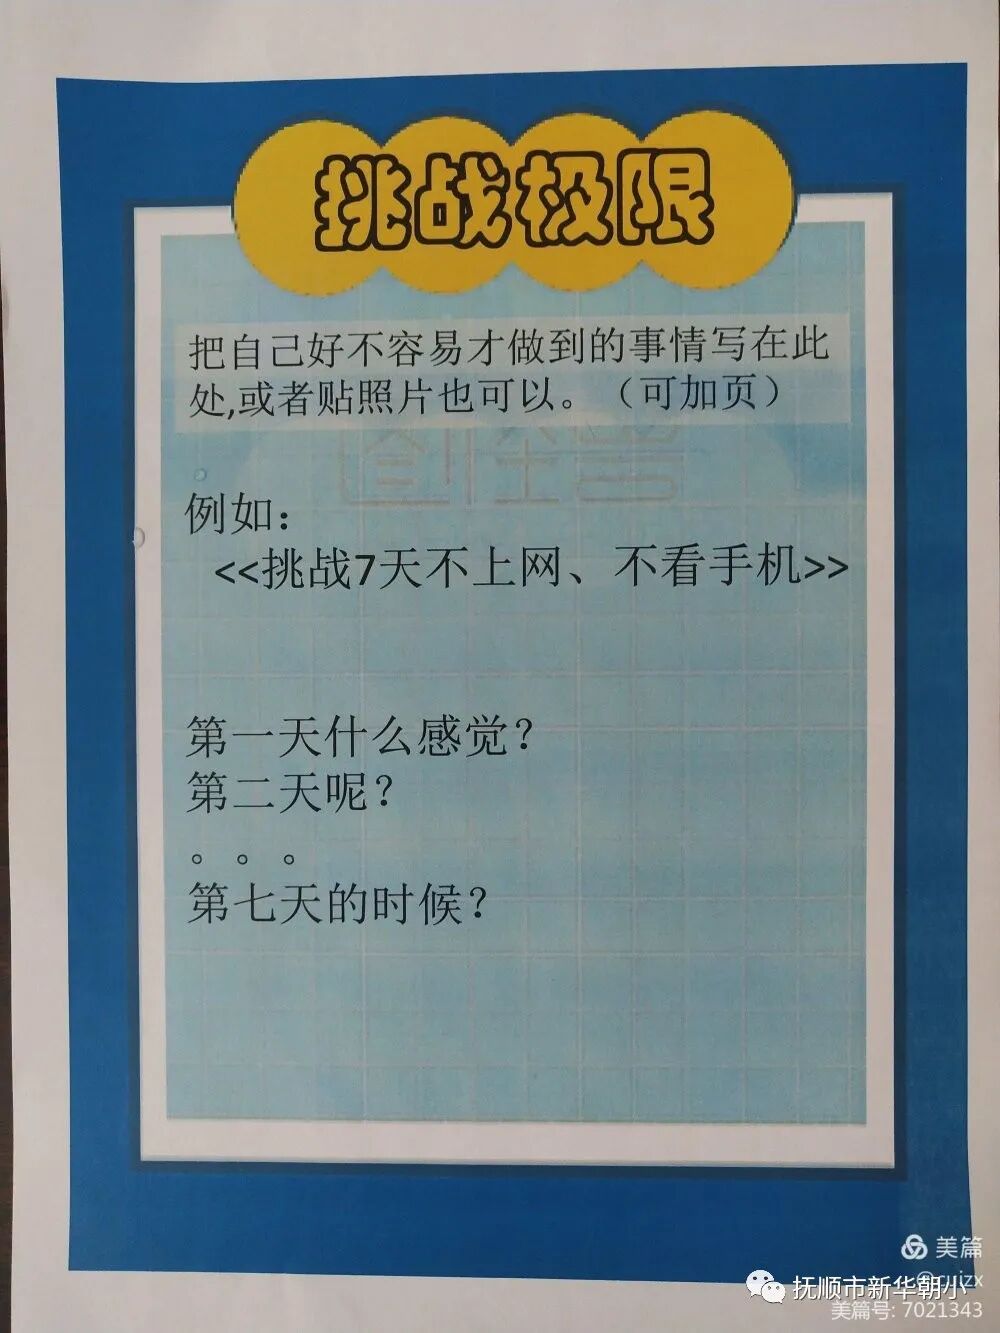 挑战极限
把自己好不容易才做到的事情写在此
处,或者贴照片也可以。（可加页）
例如：
<<挑战7天不上网、不看手机>>
第一天什么感觉？
第二天呢？
。。。
第七天的时候？
美篇
抚顺市新华朝小
美篇号: 7021343